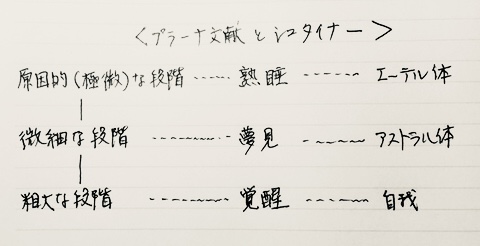 <プラーナ文献とシュタイナー>
原因的(極微)な段階……熟睡------エーテル体
微細な段階------夢見------アストラル体
粗大な段階------覚醒------自我